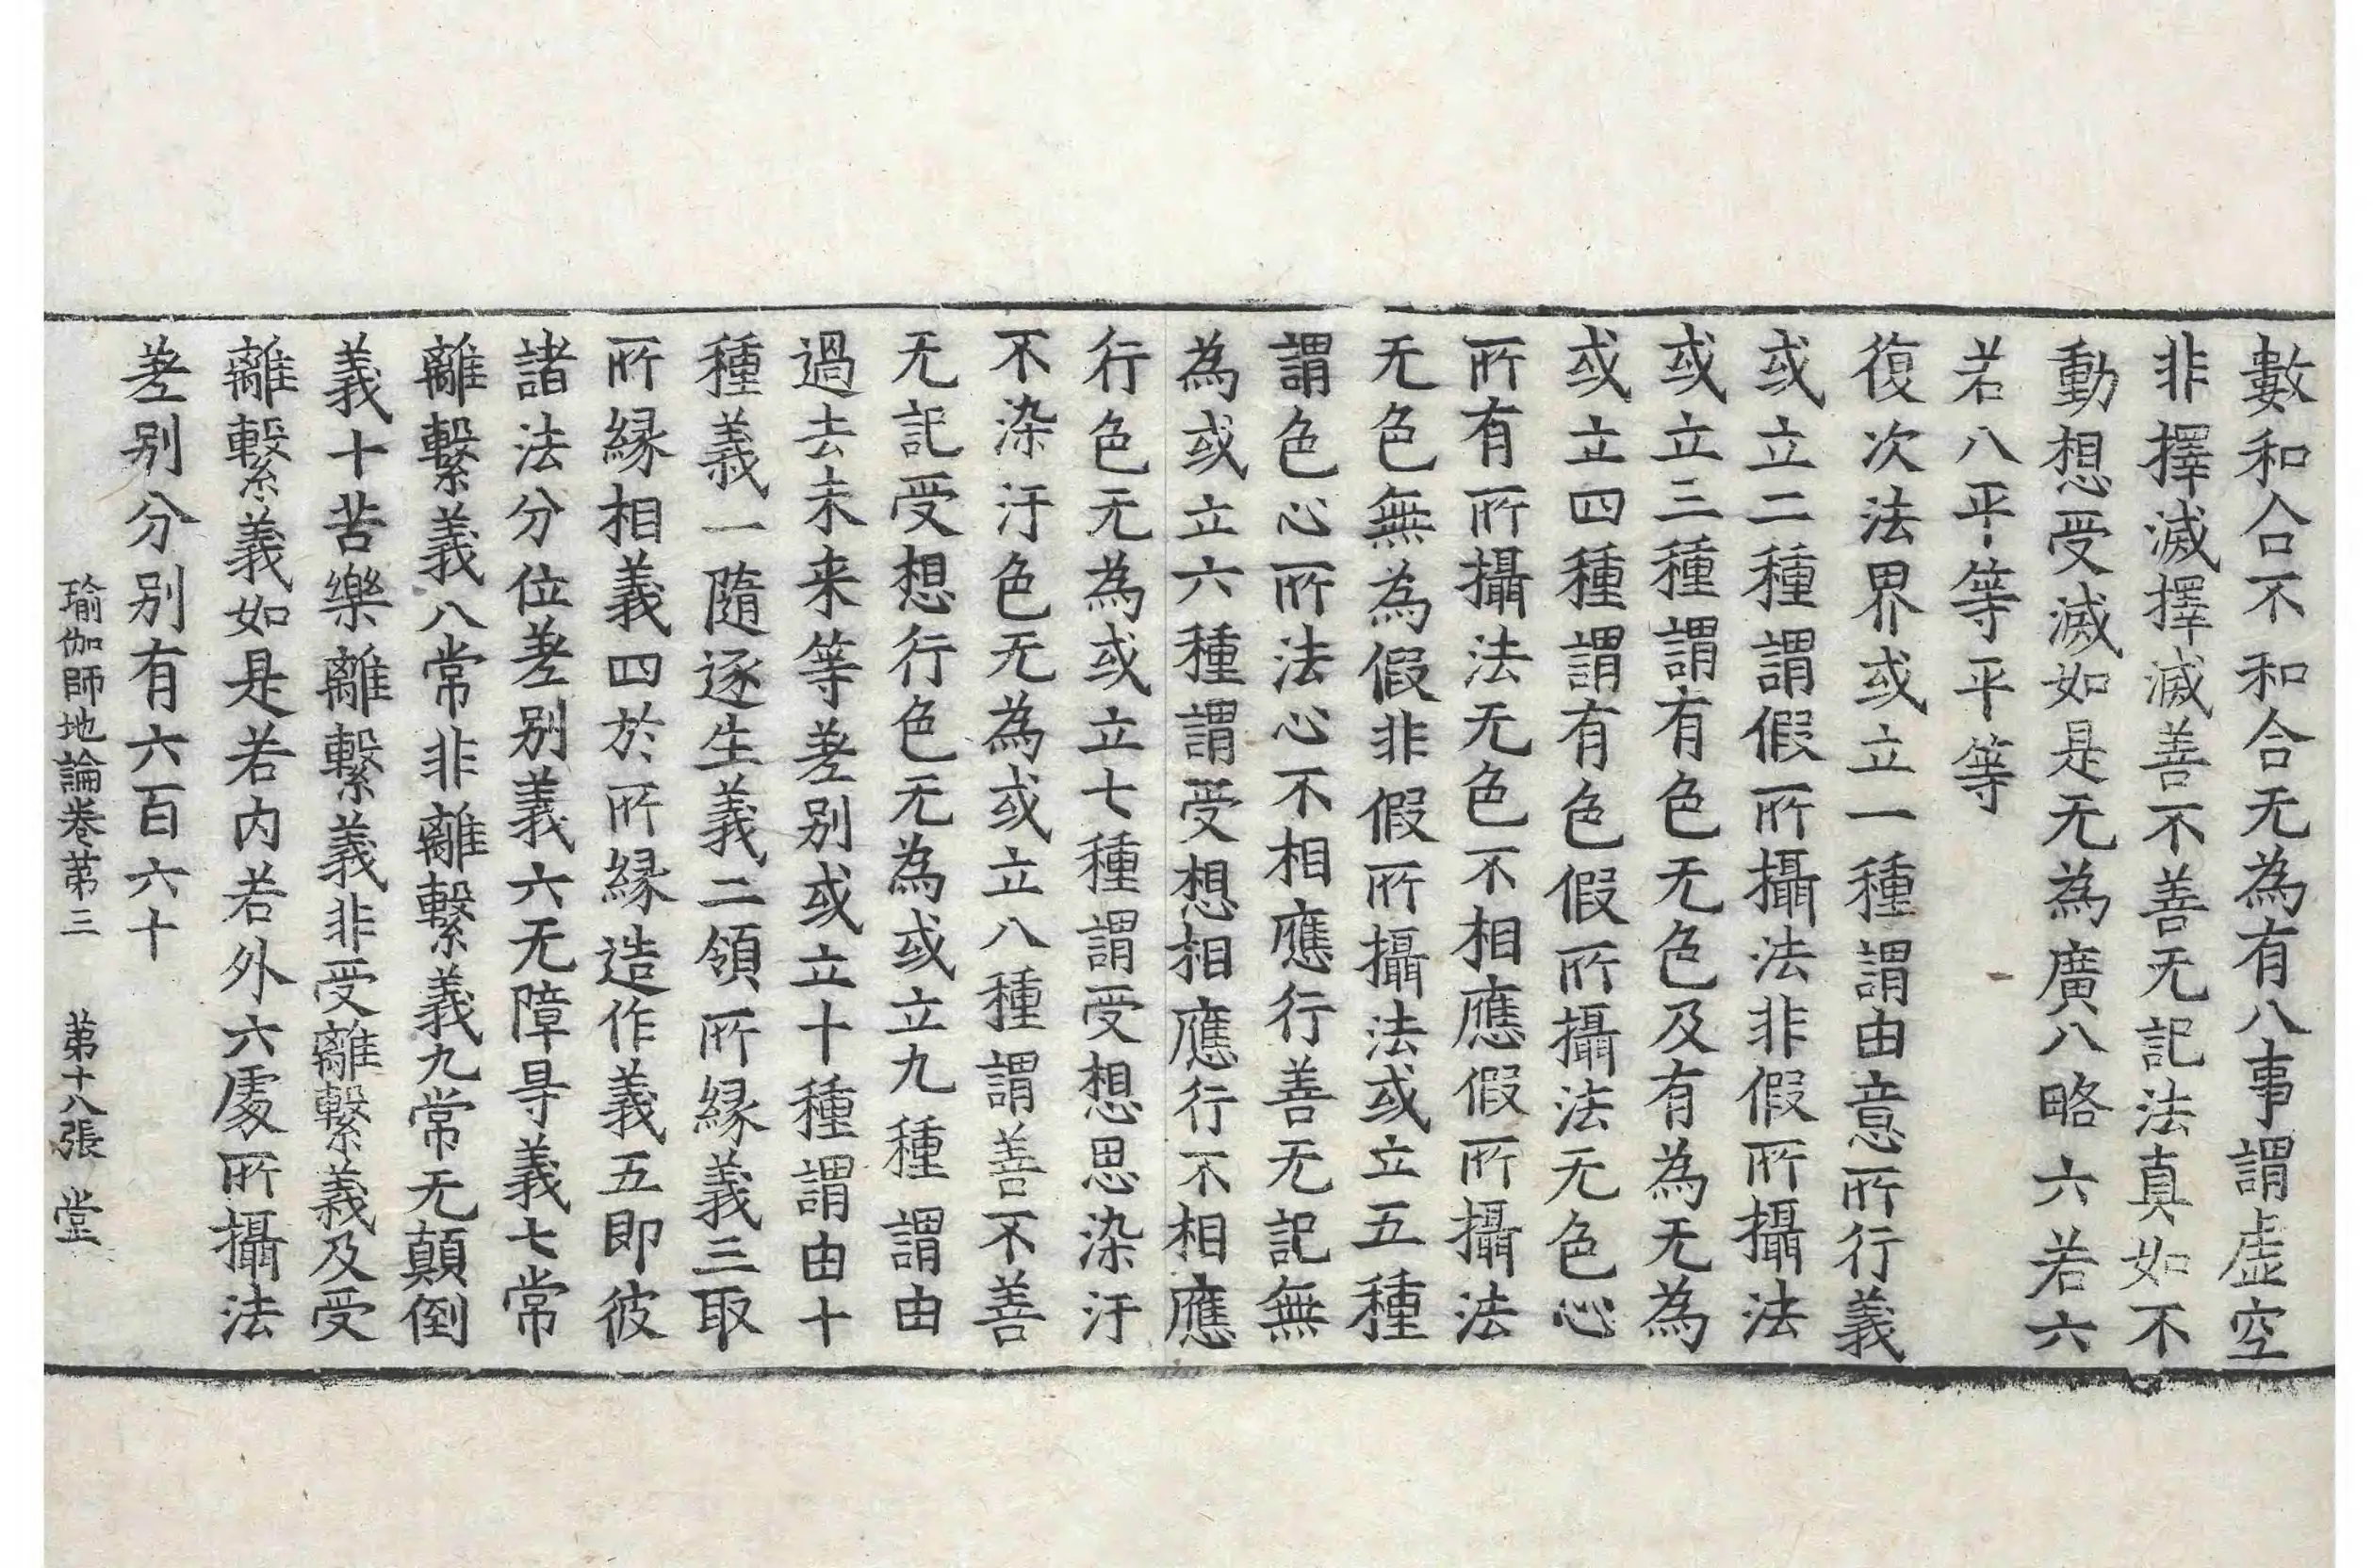 數和合不和合无為有八事謂虛空
非擇滅擇滅善不善无記法真如不
動想受滅如是无為廣八略六若六
若八平等平等
復次法界或立一種謂由意所行義
或立二種謂假所攝法非假所攝法
或立三種謂有色无色及有為无為
或立四種謂有色假所攝法无色心
所有所攝法无色不相應假所攝法
无色無為假非假所攝法或立五種
謂色心所法心不相應行善无記無
為或立六種謂受想相應行不相應
行色无為或立七種謂受想思染汙
不染汙色无為或立八種謂善不善
无記受想行色无為或立九種謂由
過去未来等差别或立十種謂由十
種義一隨逐生義二領所縁義三取
所縁相義四於所縁造作義五即彼
諸法分位差别義六无障㝵義七常
離繫義八常非離繫義九常无顛倒
義十苦樂離繫義非受離繫義及受
離繫義如是若内若外六處所攝法
差别分别有六百六十
瑜伽師地論卷苐三 苐十八張 堂